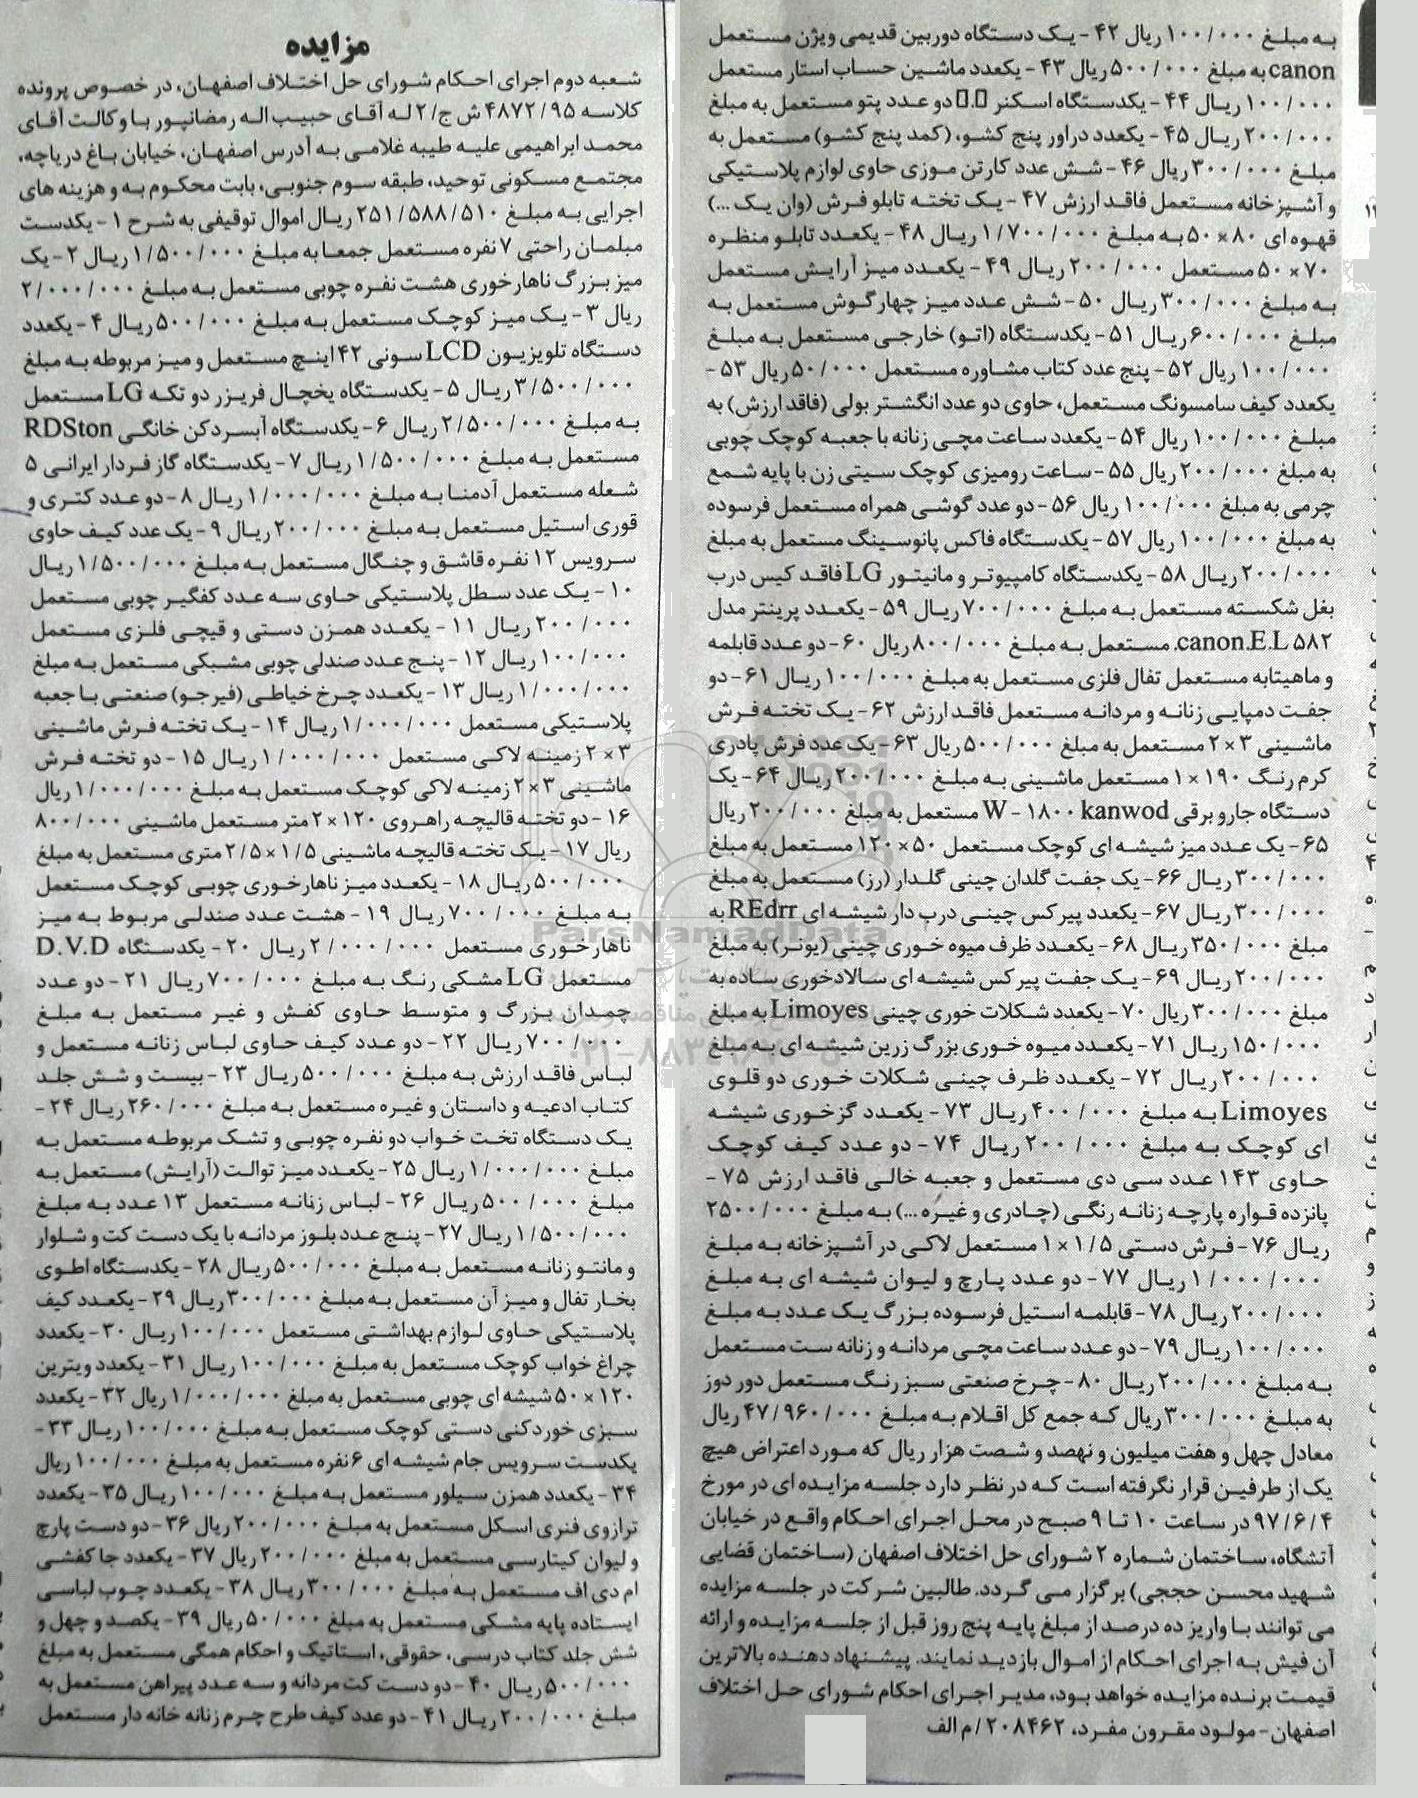 مزایده
شعبه دوم اجرای احکام شورای حل اختلاف اصفهان، در خصوص پرونده
کلاسه ۴۸۷۲/۹۵ ش ج/۲ له آقای حبیب اله رمضانپور با وکالت آقای
محمد ابراهیمی علیه طیبه غلامی به آدرس اصفهان، خیابان باغ دریاچه،
مجتمع مسکونی توحید، طبقه سوم جنوبی، بابت محکوم به و هزینه های
اجرایی به مبلغ ۲۵۱/۵۸۸/۵۱۰ ریال اموال توقیفی به شرح ۱ - یکدست
مبلمان راحتی ۷ نفره مستعمل جمعا به مبلغ ۱/۵۰۰/۰۰۰ ریال ۲ - یک
میز بزرگ ناهارخوری هشت نفره چوبی مستعمل به مبلغ ۲/۰۰۰/۰۰۰
ریال ۳ - یک میز کوچک مستعمل به مبلغ ۵۰۰/۰۰۰ ریال ۴ - یکعدد
دستگاه تلویزیون LCD سونی ۴۲ اینچ مستعمل و میز مربوطه به مبلغ
۳/۵۰۰/۰۰۰ ریال ۵ - یکدستگاه یخچال فریزر دو تکه LG مستعمل
به مبلغ ۲/۵۰۰/۰۰۰ ریال ۶ - یکدستگاه آبسردکن خانگی RDSton
مستعمل به مبلغ ۱/۵۰۰/۰۰۰ ریال ۷ - یکدستگاه گاز فردار ایرانی ۵
شعله مستعمل آدمنا به مبلغ ۱/۰۰۰/۰۰۰ ریال ۸ - دو عدد کتری و
قوری استیل مستعمل به مبلغ ۲۰۰/۰۰۰ ریال ۹ - یک عدد کیف حاوی
سرویس ۱۲ نفره قاشق و چنگال مستعمل به مبلغ ۱/۵۰۰/۰۰۰ ریال
۱۰ - یک عدد سطل پلاستیکی حاوی سه عدد کفگیر چوبی مستعمل
۲۰۰/۰۰۰ ریال ۱۱ - یکعدد همزن دستی و قیچی فلزی مستعمل
۱۰۰/۰۰۰ ریال ۱۲ - پنج عدد صندلی چوبی مشبکی مستعمل به مبلغ
۱/۰۰۰/۰۰۰ ریال ۱۳ - یکعدد چرخ خیاطی (فیرجو) صنعتی با جعبه
پلاستیکی مستعمل ۱/۰۰۰/۰۰۰ ریال ۱۴ - یک تخته فرش ماشینی
۳×۲ زمینه لاکی مستعمل ۱/۰۰۰/۰۰۰ ریال ۱۵ - دو تخته فرش
ماشینی ۳×۲ زمینه لاکی کوچک مستعمل به مبلغ ۱/۰۰۰/۰۰۰ ریال
۱۶ - دو تخته قالیچه راهروی ۱۲۰×۲ متر مستعمل ماشینی ۸۰۰/۰۰۰
ریال ۱۷ - یک تخته قالیچه ماشینی ۱/۵×۲/۵ متری مستعمل به مبلغ
۵۰۰/۰۰۰ ریال ۱۸ - یکعدد میز ناهارخوری چوبی کوچک مستعمل
به مبلغ ۷۰۰/۰۰۰ ریال ۱۹ - هشت عدد صندلی مربوط به میز
ناهارخوری مستعمل ۲/۰۰۰/۰۰۰ ریال ۲۰ - یکدستگاه D.V.D
مستعمل LG مشکی رنگ به مبلغ ۷۰۰/۰۰۰ ریال ۲۱ - دو عدد
چمدان بزرگ و متوسط حاوی کفش و غیر مستعمل به مبلغ
۷۰۰/۰۰۰ ریال ۲۲ - دو عدد کیف حاوی لباس زنانه مستعمل و
لباس فاقد ارزش به مبلغ ۵۰۰/۰۰۰ ریال ۲۳ - بیست و شش جلد
کتاب ادعیه و داستان و غیره مستعمل به مبلغ ۲۶۰/۰۰۰ ریال ۲۴ -
یک دستگاه تخت خواب دو نفره چوبی و تشک مربوطه مستعمل به
مبلغ ۱/۰۰۰/۰۰۰ ریال ۲۵ - یکعدد میز توالت (آرایش) مستعمل به
مبلغ ۵۰۰/۰۰۰ ریال ۲۶ - لباس زنانه مستعمل ۱۳ عدد به مبلغ
۱/۵۰۰/۰۰۰ ریال ۲۷ - پنج عدد بلوز مردانه با یک دست کت و شلوار
و مانتو زنانه مستعمل به مبلغ ۵۰۰/۰۰۰ ریال ۲۸ - یکدستگاه اطوی
بخار تفال و میز آن مستعمل به مبلغ ۳۰۰/۰۰۰ ریال ۲۹ - یکعدد کیف
پلاستیکی حاوی لوازم بهداشتی مستعمل ۱۰۰/۰۰۰ ریال ۳۰ - یکعدد
چراغ خواب کوچک مستعمل به مبلغ ۱۰۰/۰۰۰ ریال ۳۱ - یکعدد ویترین
۱۲۰×۵۰ شیشه ای چوبی مستعمل به مبلغ ۱/۰۰۰/۰۰۰ ریال ۳۲ - یکعدد
سبزی خوردکنی دستی کوچک مستعمل به مبلغ ۱۰۰/۰۰۰ ریال ۳۳ -
یکدست سرویس جام شیشه ای ۶ نفره مستعمل به مبلغ ۱۰۰/۰۰۰ ریال
۳۴ - یکعدد همزن سیلور مستعمل به مبلغ ۱۰۰/۰۰۰ ریال ۳۵ - یکعدد
ترازوی فنری اسکل مستعمل به مبلغ ۲۰۰/۰۰۰ ریال ۳۶ - دو دست پارچ
و لیوان کیتارسی مستعمل به مبلغ ۲۰۰/۰۰۰ ریال ۳۷ - یکعدد جا کفشی
ام دی اف مستعمل به مبلغ ۳۰۰/۰۰۰ ریال ۳۸ - یکعدد چوب لباسی
ایستاده پایه مشکی مستعمل به مبلغ ۵۰/۰۰۰ ریال ۳۹ - یکصد و چهل و
شش جلد کتاب درسی، حقوقی، استاتیک و احکام همگی مستعمل به مبلغ
۵۰۰/۰۰۰ ریال ۴۰ - دو دست کت مردانه و سه عدد پیراهن مستعمل به
مبلغ ۲۰۰/۰۰۰ ریال ۴۱ - دو عدد کیف طرح چرم زنانه خانه دار مستعمل
به مبلغ ۱۰۰/۰۰۰ ریال ۴۲ - یک دستگاه دوربین قدیمی ویژن مستعمل
canon به مبلغ ۵۰۰/۰۰۰ ریال ۴۳ - یکعدد ماشین حساب استار مستعمل
۱۰۰/۰۰۰ ریال ۴۴ - یکدستگاه اسکنر دو عدد پتو مستعمل به مبلغ
۲۰۰/۰۰۰ ریال ۴۵ - یکعدد دراور پنج کشو، (کمد پنج کشو) مستعمل به
مبلغ ۳۰۰/۰۰۰ ریال ۴۶ - شش عدد کارتن موزی حاوی لوازم پلاستیکی
و آشپزخانه مستعمل فاقد ارزش ۴۷ - یک تخته تابلو فرش (وان یک ...)
قهوه ای ۸۰×۵۰ به مبلغ ۱/۷۰۰/۰۰۰ ریال ۴۸ - یکعدد تابلو منظره
۷۰×۵۰ مستعمل ۲۰۰/۰۰۰ ریال ۴۹ - یکعدد میز آرایش مستعمل
به مبلغ ۳۰۰/۰۰۰ ریال ۵۰ - شش عدد میز چهارگوش مستعمل به
مبلغ ۶۰۰/۰۰۰ ریال ۵۱ - یکدستگاه (اتو) خارجی مستعمل به مبلغ
۱۰۰/۰۰۰ ریال ۵۲ - پنج عدد کتاب مشاوره مستعمل ۵۰/۰۰۰ ریال ۵۳ -
یکعدد کیف سامسونگ مستعمل، حاوی دو عدد انگشتر بولی (فاقد ارزش) به
مبلغ ۱۰۰/۰۰۰ ریال ۵۴ - یکعدد ساعت مچی زنانه با جعبه کوچک چوبی
به مبلغ ۲۰۰/۰۰۰ ریال ۵۵ - ساعت رومیزی کوچک سیتی زن با پایه شمع
چرمی به مبلغ ۱۰۰/۰۰۰ ریال ۵۶ - دو عدد گوشی همراه مستعمل فرسوده
به مبلغ ۱۰۰/۰۰۰ ریال ۵۷ - یکدستگاه فاکس پانوسینگ مستعمل به مبلغ
۲۰۰/۰۰۰ ریال ۵۸ - یکدستگاه کامپیوتر و مانیتور LG فاقد کیس درب
بغل شکسته مستعمل به مبلغ ۷۰۰/۰۰۰ ریال ۵۹ - یکعدد پرینتر مدل
canon.E.L ۵۸۲ مستعمل به مبلغ ۸۰۰/۰۰۰ ریال ۶۰ - دو عدد قابلمه
و ماهیتابه مستعمل تفال فلزی مستعمل به مبلغ ۱۰۰/۰۰۰ ریال ۶۱ - دو
جفت دمپایی زنانه و مردانه مستعمل فاقد ارزش ۶۲ - یک تخته فرش
ماشینی ۳×۲ مستعمل به مبلغ ۵۰۰/۰۰۰ ریال ۶۳ - یک عدد فرش پادری
کرم رنگ ۱۹۰×۱ مستعمل ماشینی به مبلغ ۲۰۰/۰۰۰ ریال ۶۴ - یک
دستگاه جارو برقی W - ۱۸۰۰ kanwod مستعمل به مبلغ ۲۰۰/۰۰۰ ریال
۶۵ - یک عدد میز شیشه ای کوچک مستعمل ۵۰×۱۲۰ مستعمل به مبلغ
۳۰۰/۰۰۰ ریال ۶۶ - یک جفت گلدان چینی گلدار (رز) مستعمل به مبلغ
۳۰۰/۰۰۰ ریال ۶۷ - یکعدد پیرکس چینی درب دار شیشه ای REdrr به
مبلغ ۳۵۰/۰۰۰ ریال ۶۸ - یکعدد ظرف میوه خوری چینی (یونر) به مبلغ
۲۰۰/۰۰۰ ریال ۶۹ - یک جفت پیرکس شیشه ای سالادخوری ساده به
مبلغ ۳۰۰/۰۰۰ ریال ۷۰ - یکعدد شکلات خوری چینی Limoyes به مبلغ
۱۵۰/۰۰۰ ریال ۷۱ - یکعدد میوه خوری بزرگ زرین شیشه ای به مبلغ
۲۰۰/۰۰۰ ریال ۷۲ - یکعدد ظرف چینی شکلات خوری دو قلوی
Limoyes به مبلغ ۴۰۰/۰۰۰ ریال ۷۳ - یکعدد گزخوری شیشه
ای کوچک به مبلغ ۲۰۰/۰۰۰ ریال ۷۴ - دو عدد کیف کوچک
حاوی ۱۴۳ عدد سی دی مستعمل و جعبه خالی فاقد ارزش ۷۵ -
پانزده قواره پارچه زنانه رنگی (چادری و غیره ...) به مبلغ ۲۵۰۰/۰۰۰
ریال ۷۶ - فرش دستی ۱/۵×۱ مستعمل لاکی در آشپزخانه به مبلغ
۱/۰۰۰/۰۰۰ ریال ۷۷ - دو عدد پارچ و لیوان شیشه ای به مبلغ
۲۰۰/۰۰۰ ریال ۷۸ - قابلمه استیل فرسوده بزرگ یک عدد به مبلغ
۱۰۰/۰۰۰ ریال ۷۹ - دو عدد ساعت مچی مردانه و زنانه ست مستعمل
به مبلغ ۲۰۰/۰۰۰ ریال ۸۰ - چرخ صنعتی سبز رنگ مستعمل دور دوز
به مبلغ ۳۰۰/۰۰۰ ریال که جمع کل اقلام به مبلغ ۴۷/۹۶۰/۰۰۰ ریال
معادل چهل و هفت میلیون و نهصد و شصت هزار ریال که مورد اعتراض هیچ
یک از طرفین قرار نگرفته است که در نظر دارد جلسه مزایده ای در مورخ
۹۷/۶/۴ در ساعت ۱۰ تا ۹ صبح در محل اجرای احکام واقع در خیابان
آتشگاه، ساختمان شماره ۲ شورای حل اختلاف اصفهان (ساختمان قضایی
شهید محسن حججی) برگزار می گردد. طالبین شرکت در جلسه مزایده
می توانند با واریز ده درصد از مبلغ پایه پنج روز قبل از جلسه مزایده و ارائه
آن فیش به اجرای احکام از اموال بازدید نمایند. پیشنهاد دهنده بالاترین
قیمت برنده مزایده خواهد بود، مدیر اجرای احکام شورای حل اختلاف
اصفهان - مولود مقرون مفرد، ۲۰۸۴۶۲/م الف
ParsNamadData